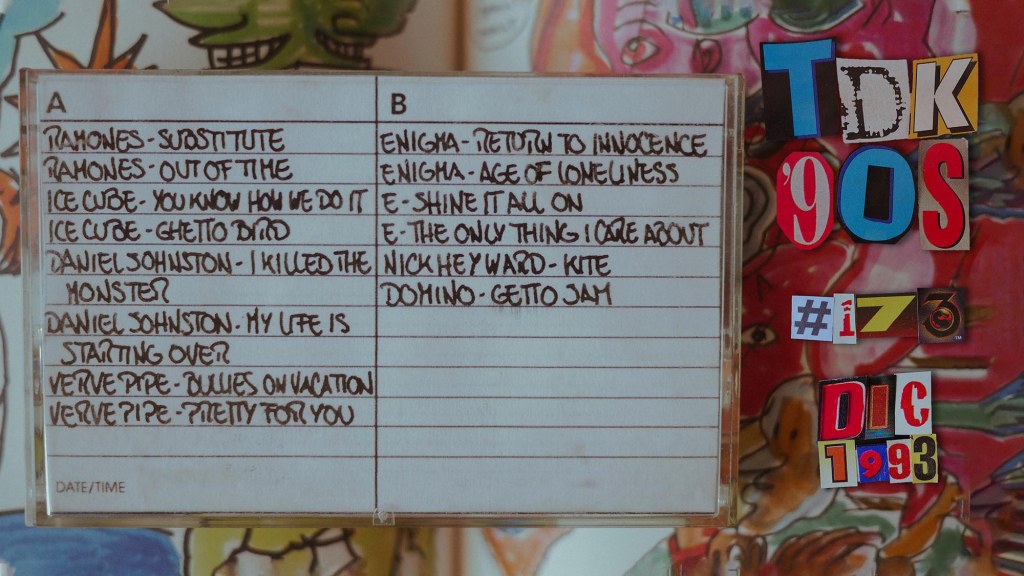 A
RAMONES - SUBSTITUTE
RAMONES - OUT OF TIME
ICE CUBE - YOU KNOW HOW WE DO IT
ICE CUBE - GHETTO BIRD
DANIEL JOHNSTON - I KILLED THE
MONSTER
DANIEL JOHNSTON - MY LIFE IS
STARTING OVER
VERVE PIPE - BULLIES ON VACATION
VERVE PIPE - PRETTY FOR YOU
DATE/TIME
B
ENIGMA - RETURN TO INNOCENCE
ENIGMA - AGE OF LONELINESS
E - SHINE IT ALL ON
E - THE ONLY THING I CARE ABOUT
NICK HEYWARD - KITE
DOMINO - GETTO JAM
TDK
'90S
#173
TM
DIC
1993